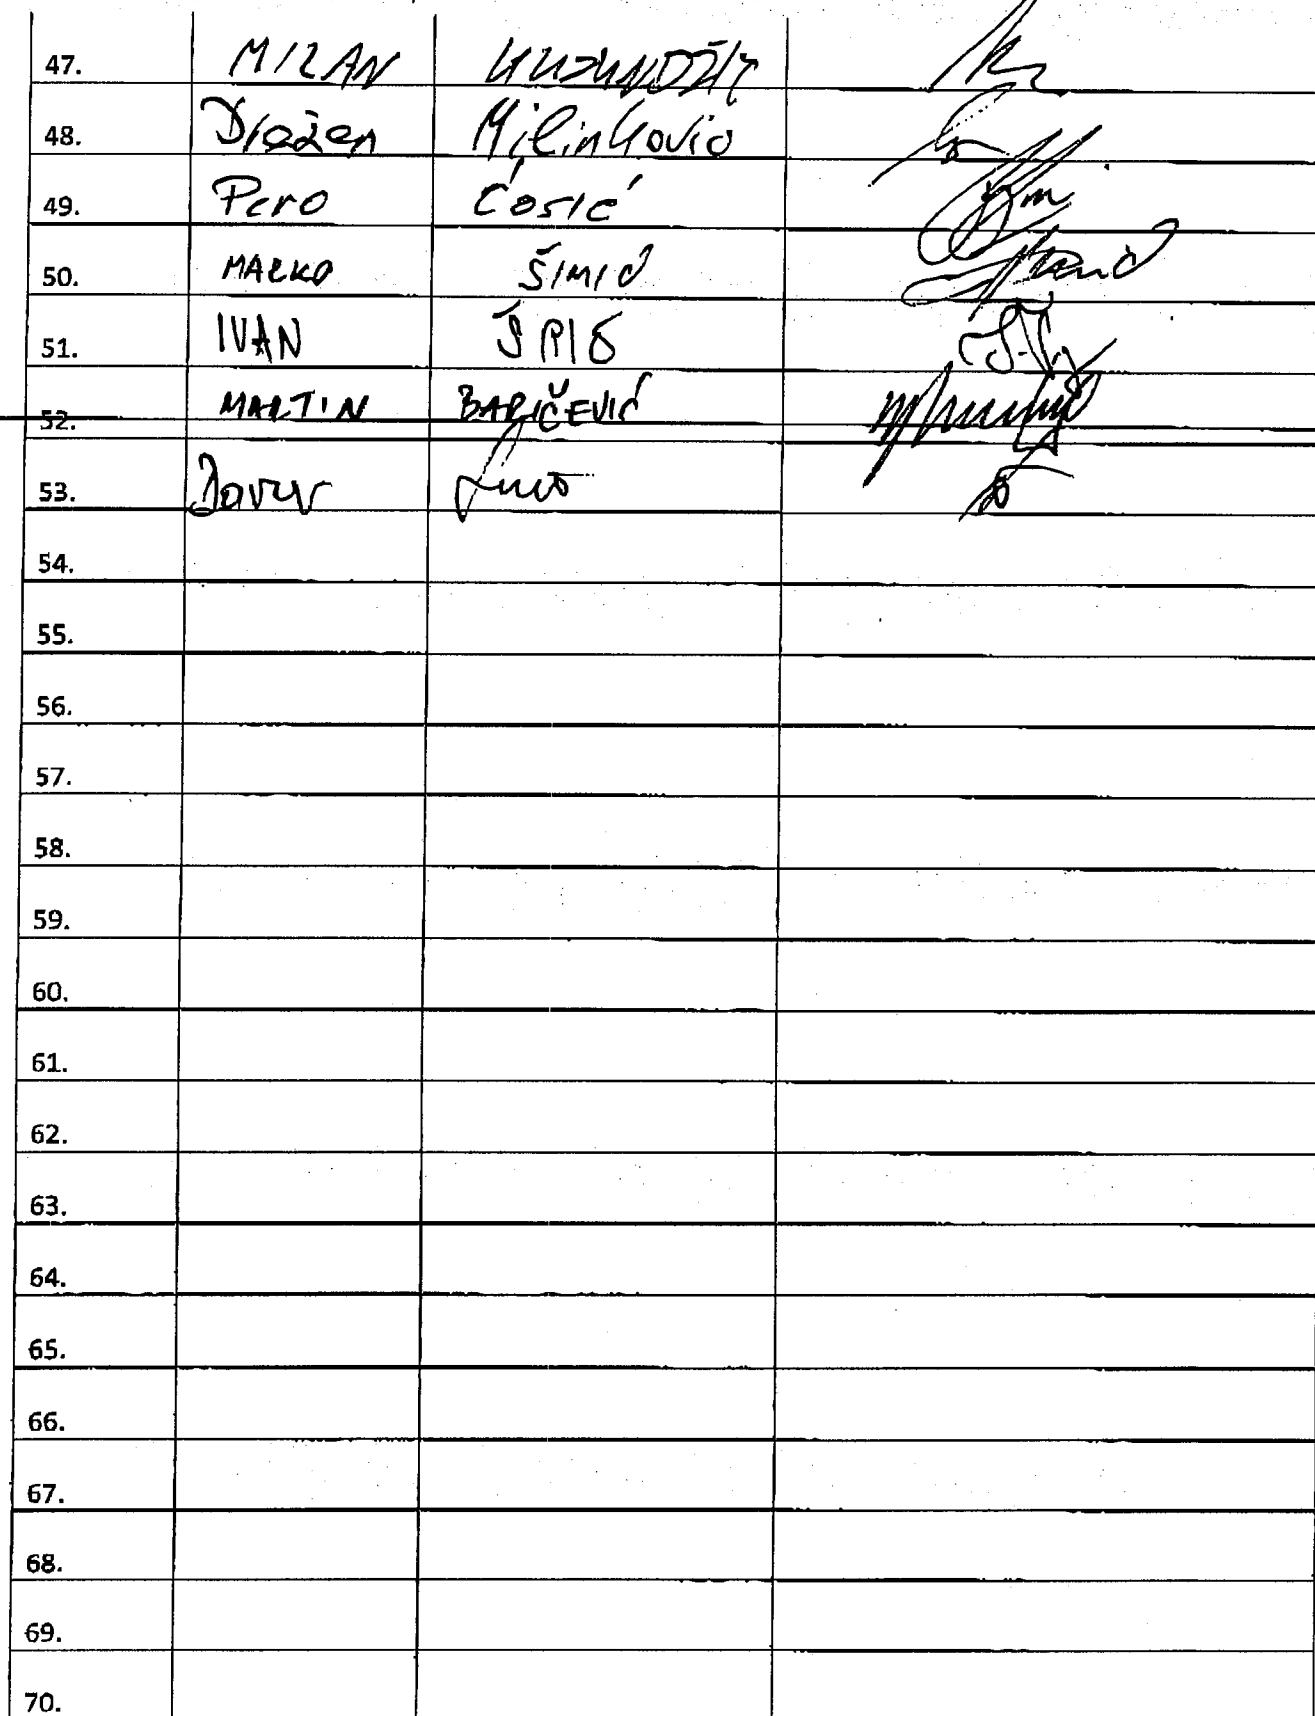 47. MILAN KUJUNDŽIĆ
48. Dražen Milinković
49. Pero Ćosić
50. MARKO ŠIMIĆ
51. IVAN
52. MARTIN BARIČEVIĆ
53.
54.
55.
56.
57.
58.
59.
60.
61.
62.
63.
64.
65.
66.
67.
68.
69.
70.